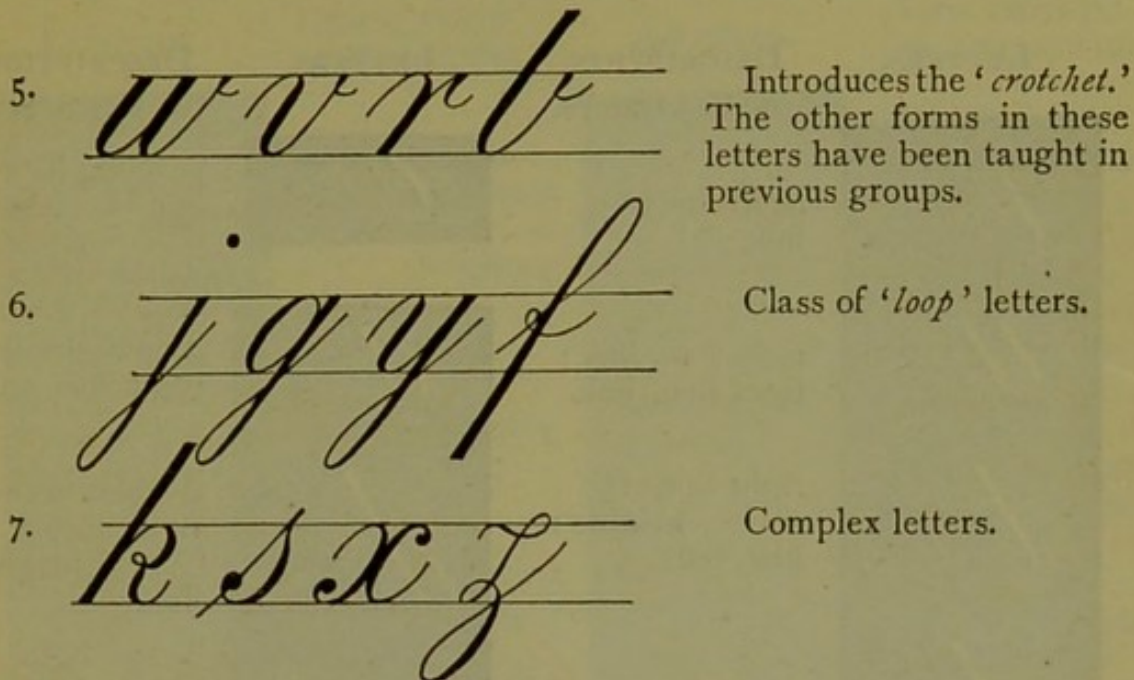 5. w v r b Introduces the ‘crotchet.’
The other forms in these
letters have been taught in
previous groups.
6. j g y f Class of ‘loop’ letters.
7. k s x z Complex letters.